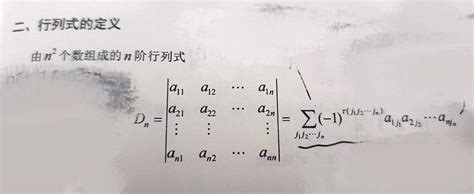 二、行列式的定义
由n²个数组成的n阶行列式
D_n = | a_{11} a_{12} ⋯ a_{1n} |
| a_{21} a_{22} ⋯ a_{2n} |
| ⋮ ⋮ ⋮ |
| a_{n1} a_{n2} ⋯ a_{nn} | = ∑_{j_1j_2⋯j_n} (-1)^{τ(j_1j_2⋯j_n)} a_{1j_1}a_{2j_2}⋯a_{nj_n}